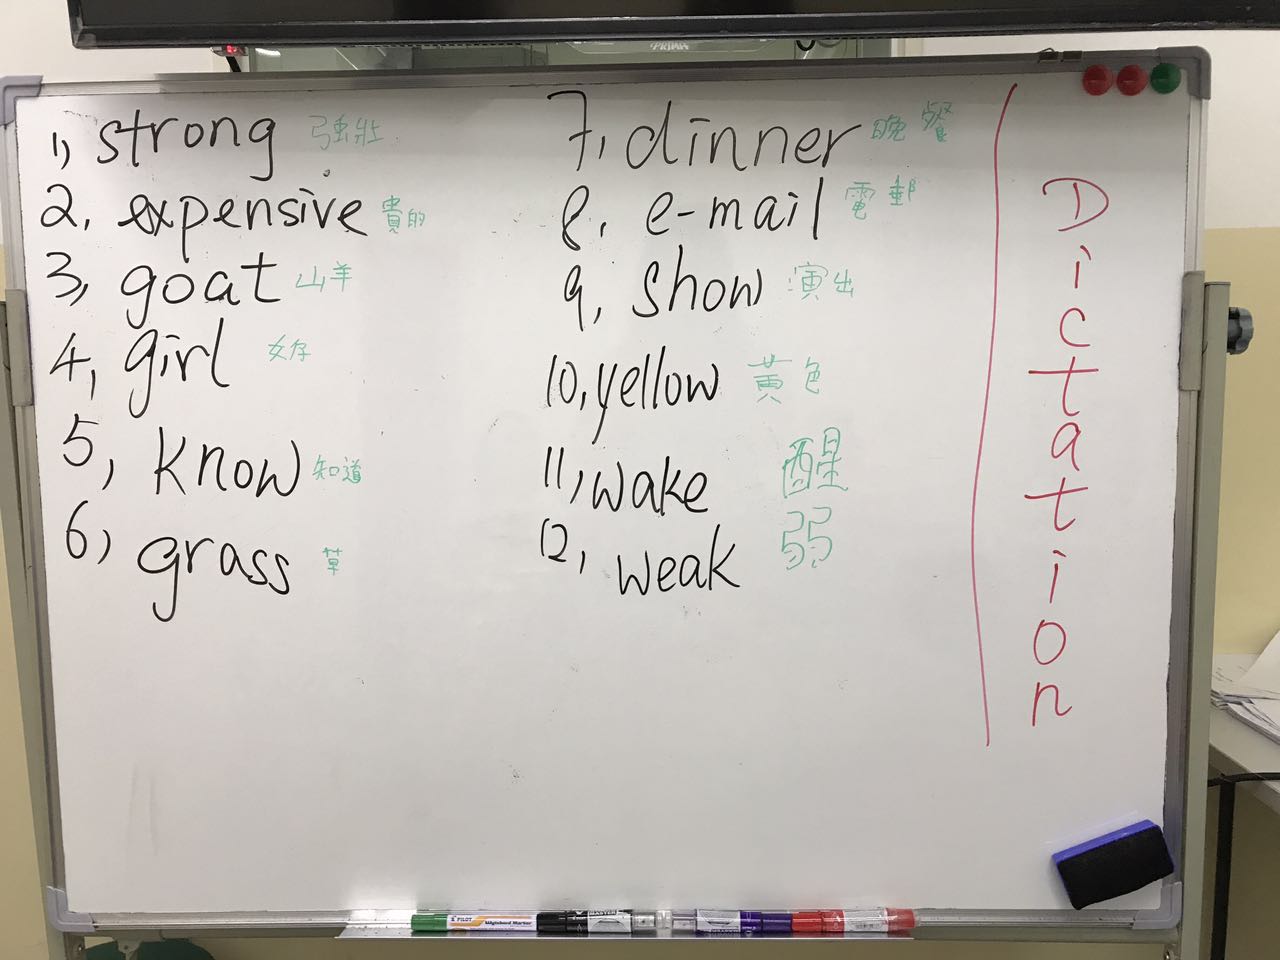 PRIMA
1, strong 強壯
2, expensive 貴的
3, goat 山羊
4, girl 女仔
5, know 知道
6, grass 草
7, dinner 晚餐
8, e-mail 電郵
9, show 演出
10, yellow 黃色
11, wake 醒
12, weak 弱
Dictation
PILOT Wyteboard Marker
MASTER